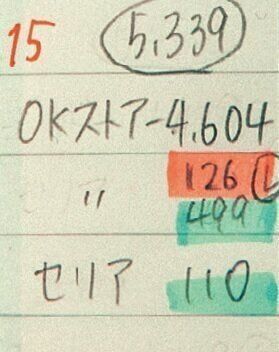 15 5,339
OKストアー4.604
126 ①
〃 499
セリア 110